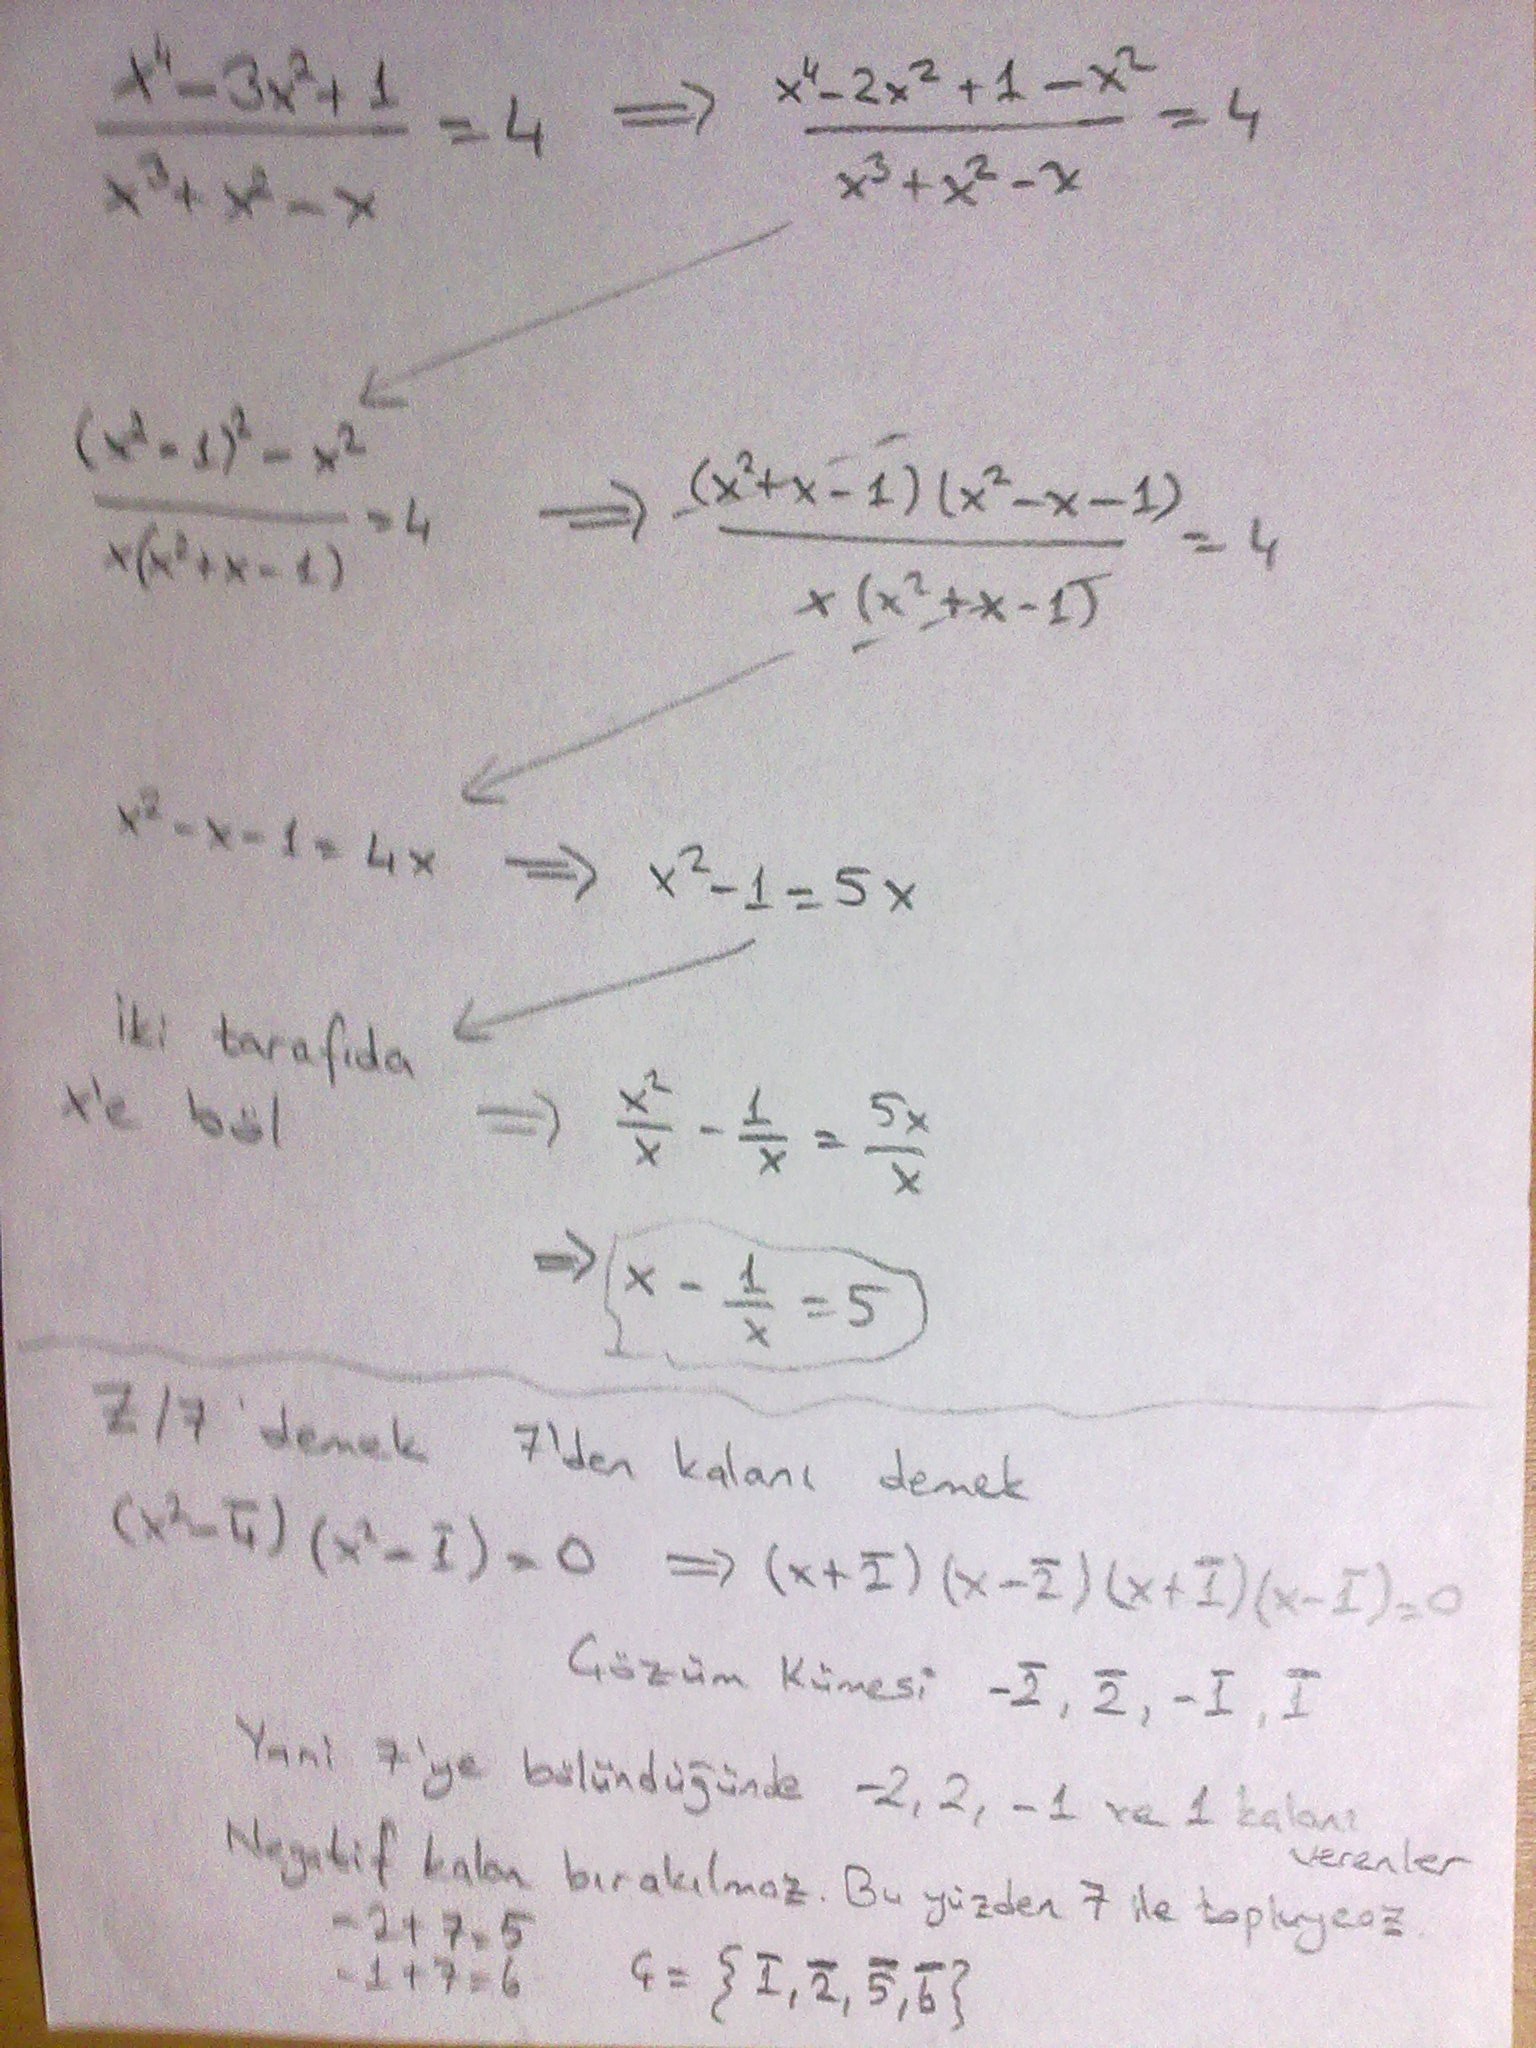 x⁴-3x²+1 / x³+x²-x = 4 ⇒ x⁴-2x²+1-x² / x³+x²-x = 4
(x²-1)²-x² / x(x²+x-1) = 4 ⇒ (x²+x-1)(x²-x-1) / x(x²+x-1) = 4
x²-x-1=4x ⇒ x²-1=5x
İki tarafıda
x'e böl ⇒ x²/x - 1/x = 5x/x
⇒ x - 1/x = 5
Z/7 'demek 7'den kalanı demek
(x²-4̄)(x²-1̄)=0 ⇒ (x+2̄)(x-2̄)(x+1̄)(x-1̄)=0
Çözüm Kümesi -2̄, 2̄, -1̄, 1̄
Yani 7'ye bölündüğünde -2, 2, -1 ve 1 kalanı
verenler
Negatif kalan bırakılmaz. Bu yüzden 7 ile topluycaz.
-2+7=5
-1+7=6 Ç= {1̄, 2̄, 5̄, 6̄}